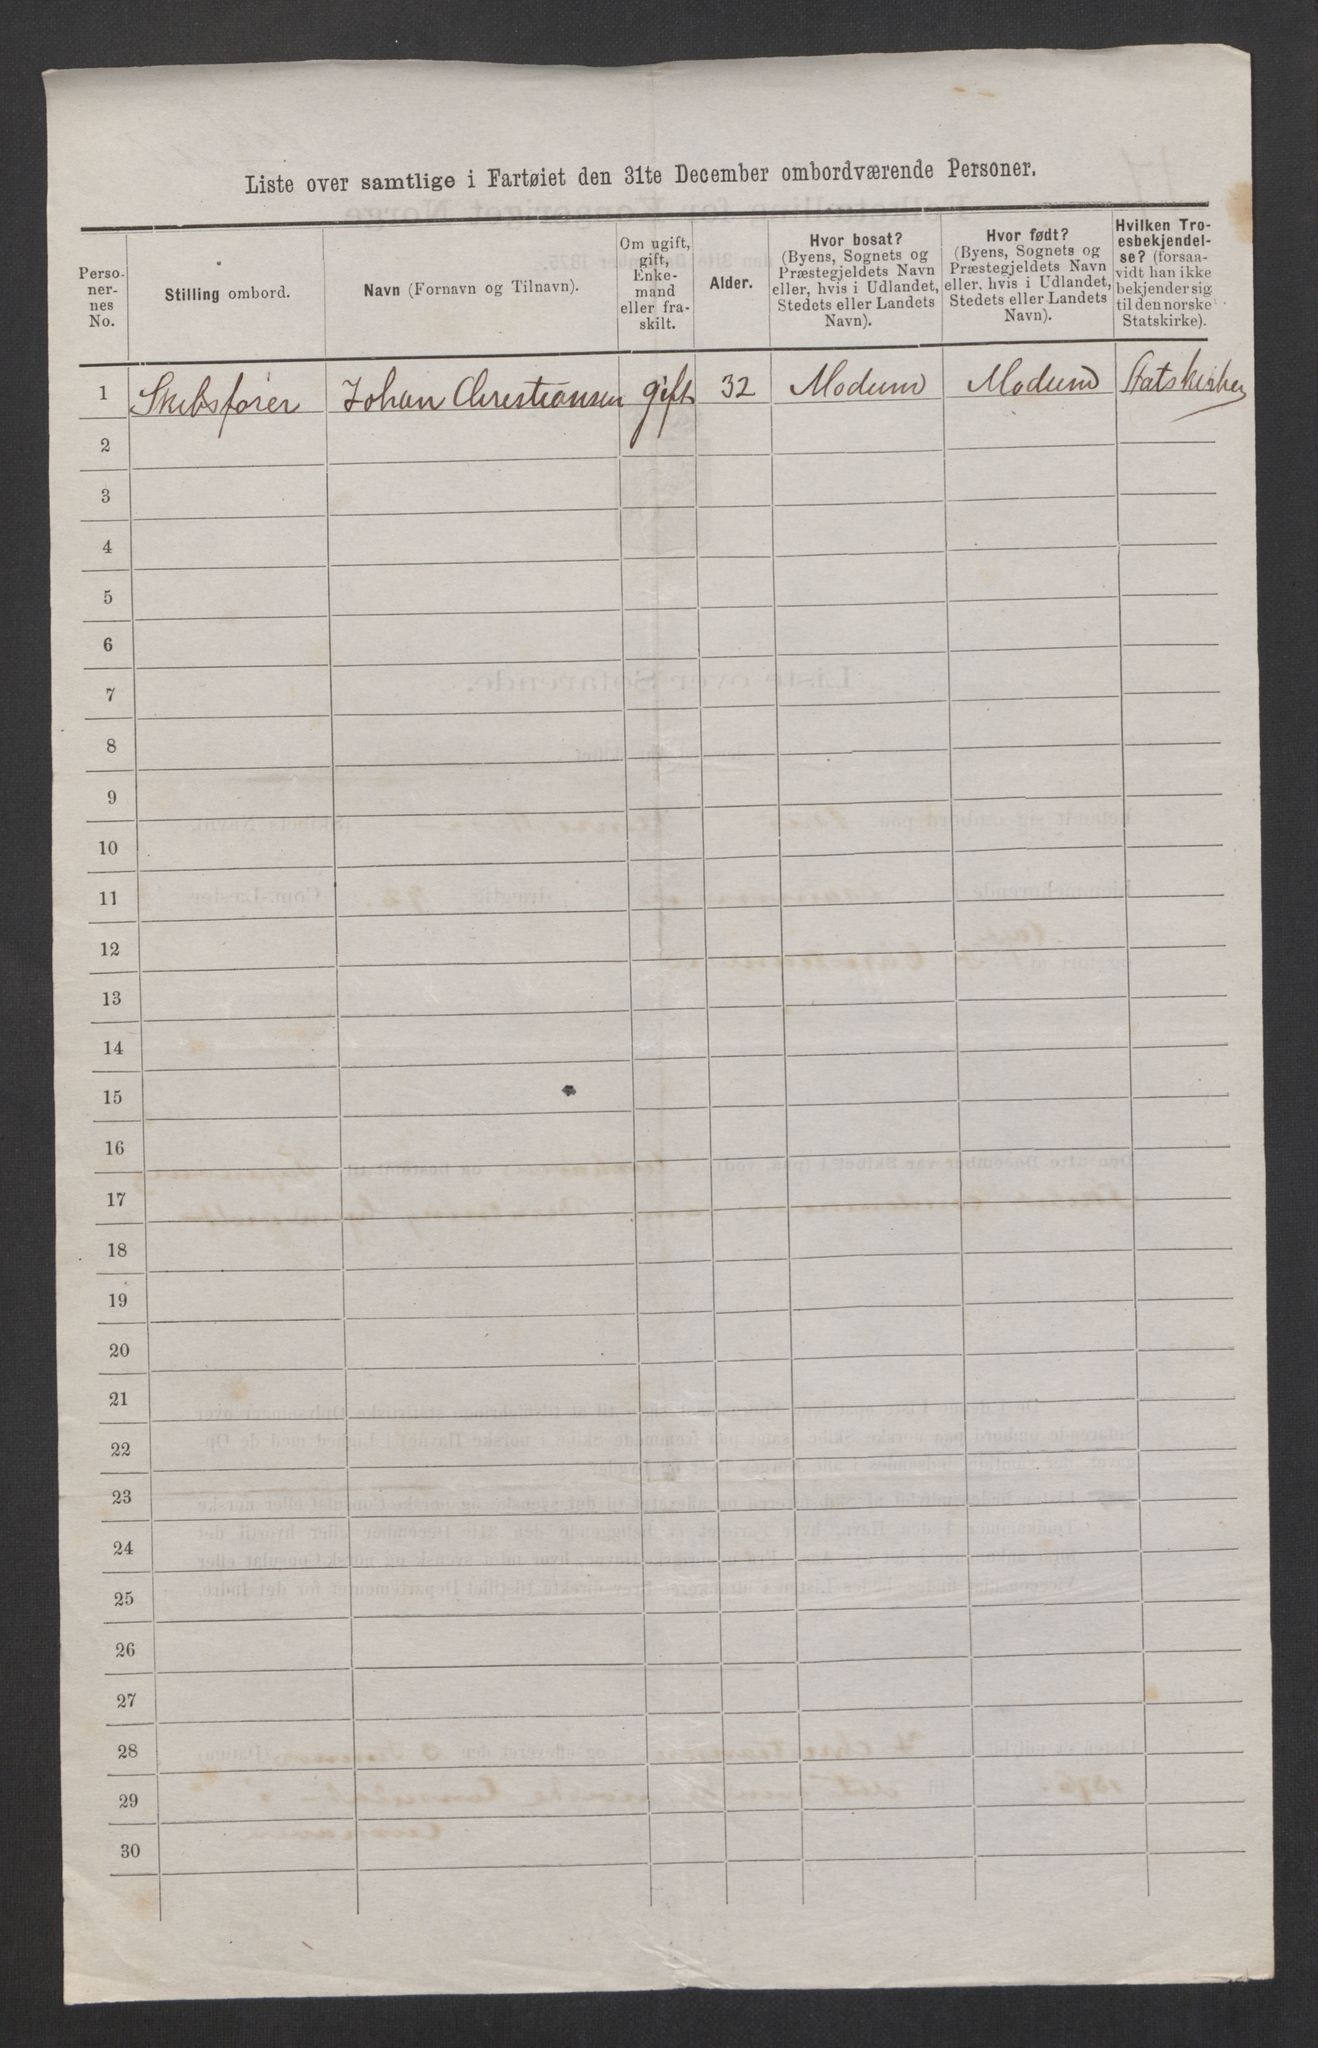 Liste over samtlige i Fartøiet den 31te December ombordværende Personer.
Perso-
ner-
nes
No.
Stilling ombord.
Navn (Fornavn og Tilnavn).
Om ugift,
gift,
Enke-
mand
eller fra-
skilt.
Alder.
Hvor bosat?
(Byens, Sognets og
Præstegjeldets Navn
eller, hvis i Udlandet,
Stedets eller Landets
Navn).
Hvor født?
(Byens, Sognets og
Præstegjeldets Navn
eller, hvis i Udlandet,
Stedets eller Landets
Navn).
Hvilken Tro-
esbekjendel-
se? (forsaa-
vidt han ikke
bekjender sig
til den norske
Statskirke).
1 Skibsfører Johan Christiansen gift 32 Modum Modum Statskirken
2
3
4
5
6
7
8
9
10
11
12
13
14
15
16
17
18
19
20
21
22
23
24
25
26
27
28
29
30